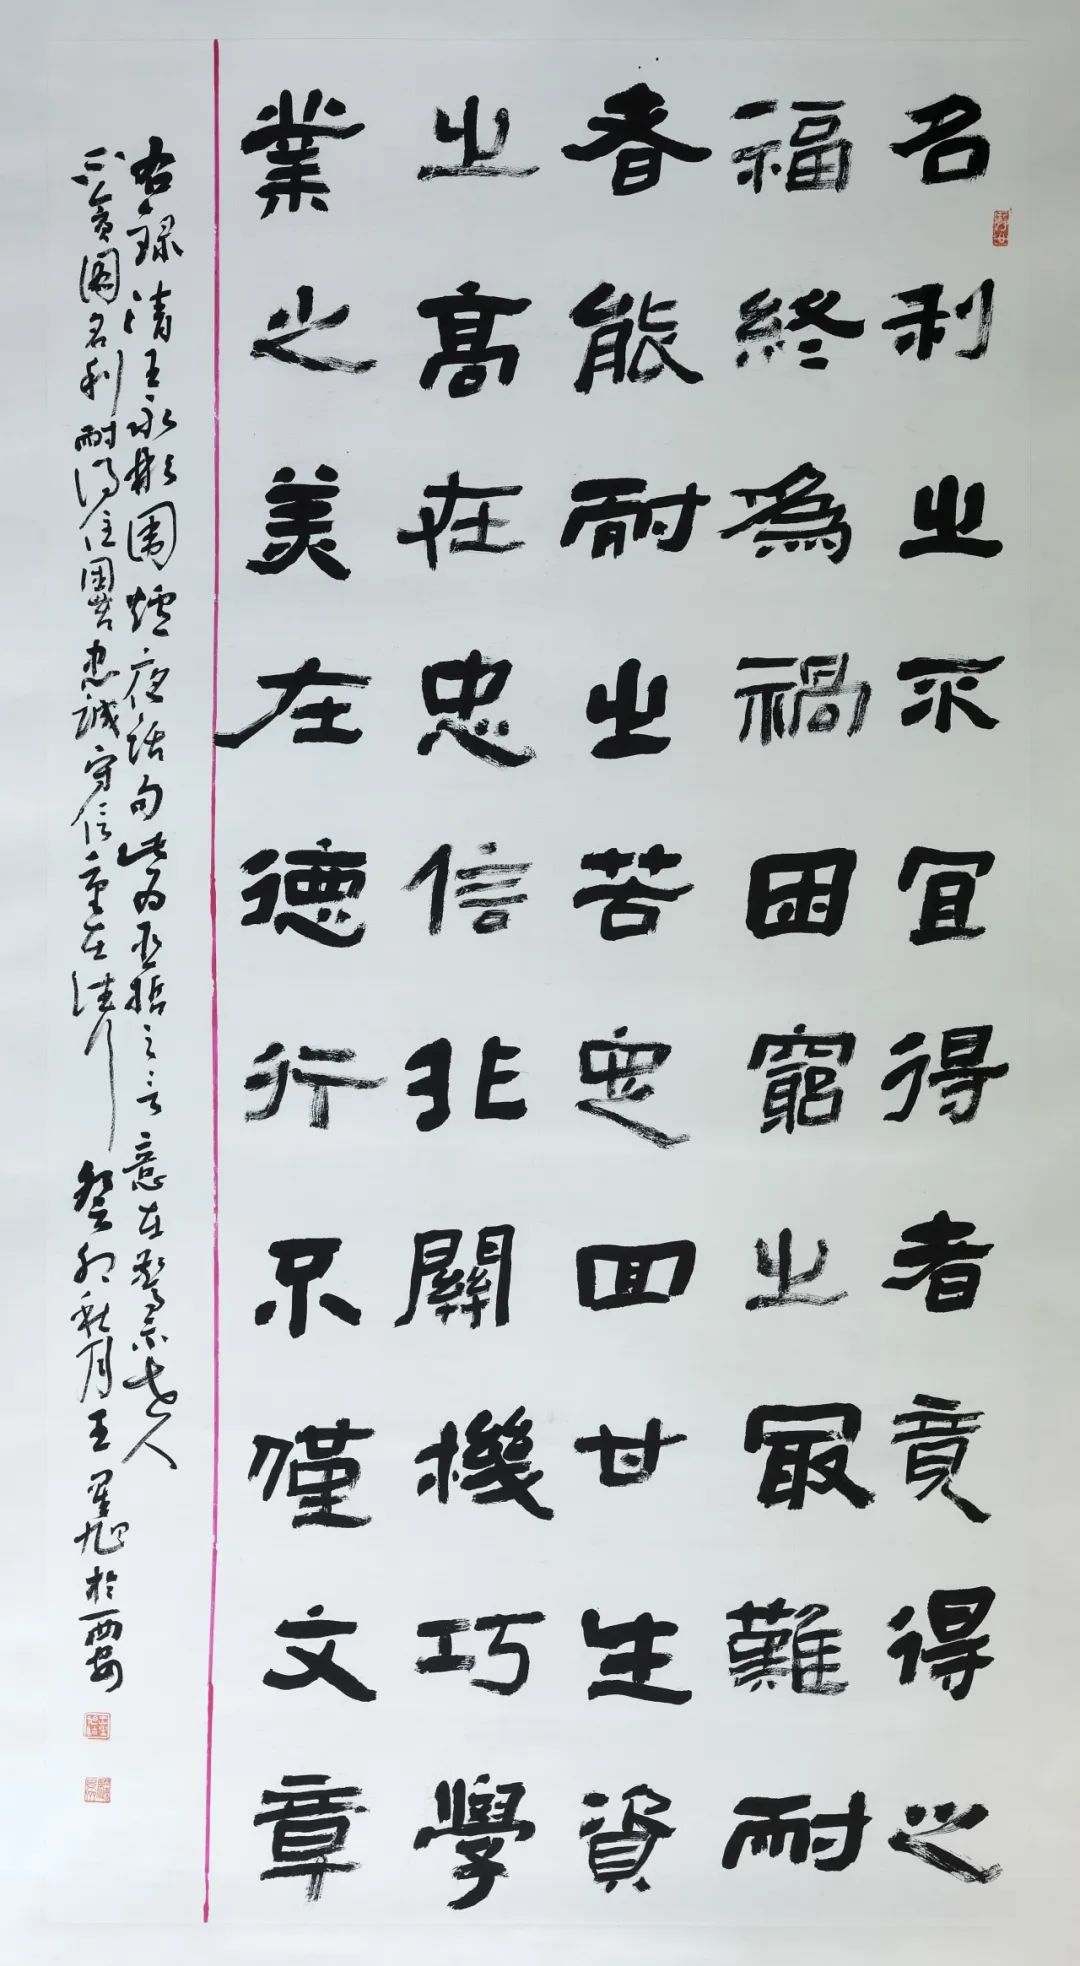 名利之不宜得者竟得之
福終為禍困窮之最難耐
者能耐之苦定回甘生資
之高在忠信非關機巧學
業之美在德行不僅文章
右録清王永彬围爐夜話句此为至哲之言意在警示世人
不貪图名利耐得住困苦忠誠守信重在行 癸卯秋月王旭於西安